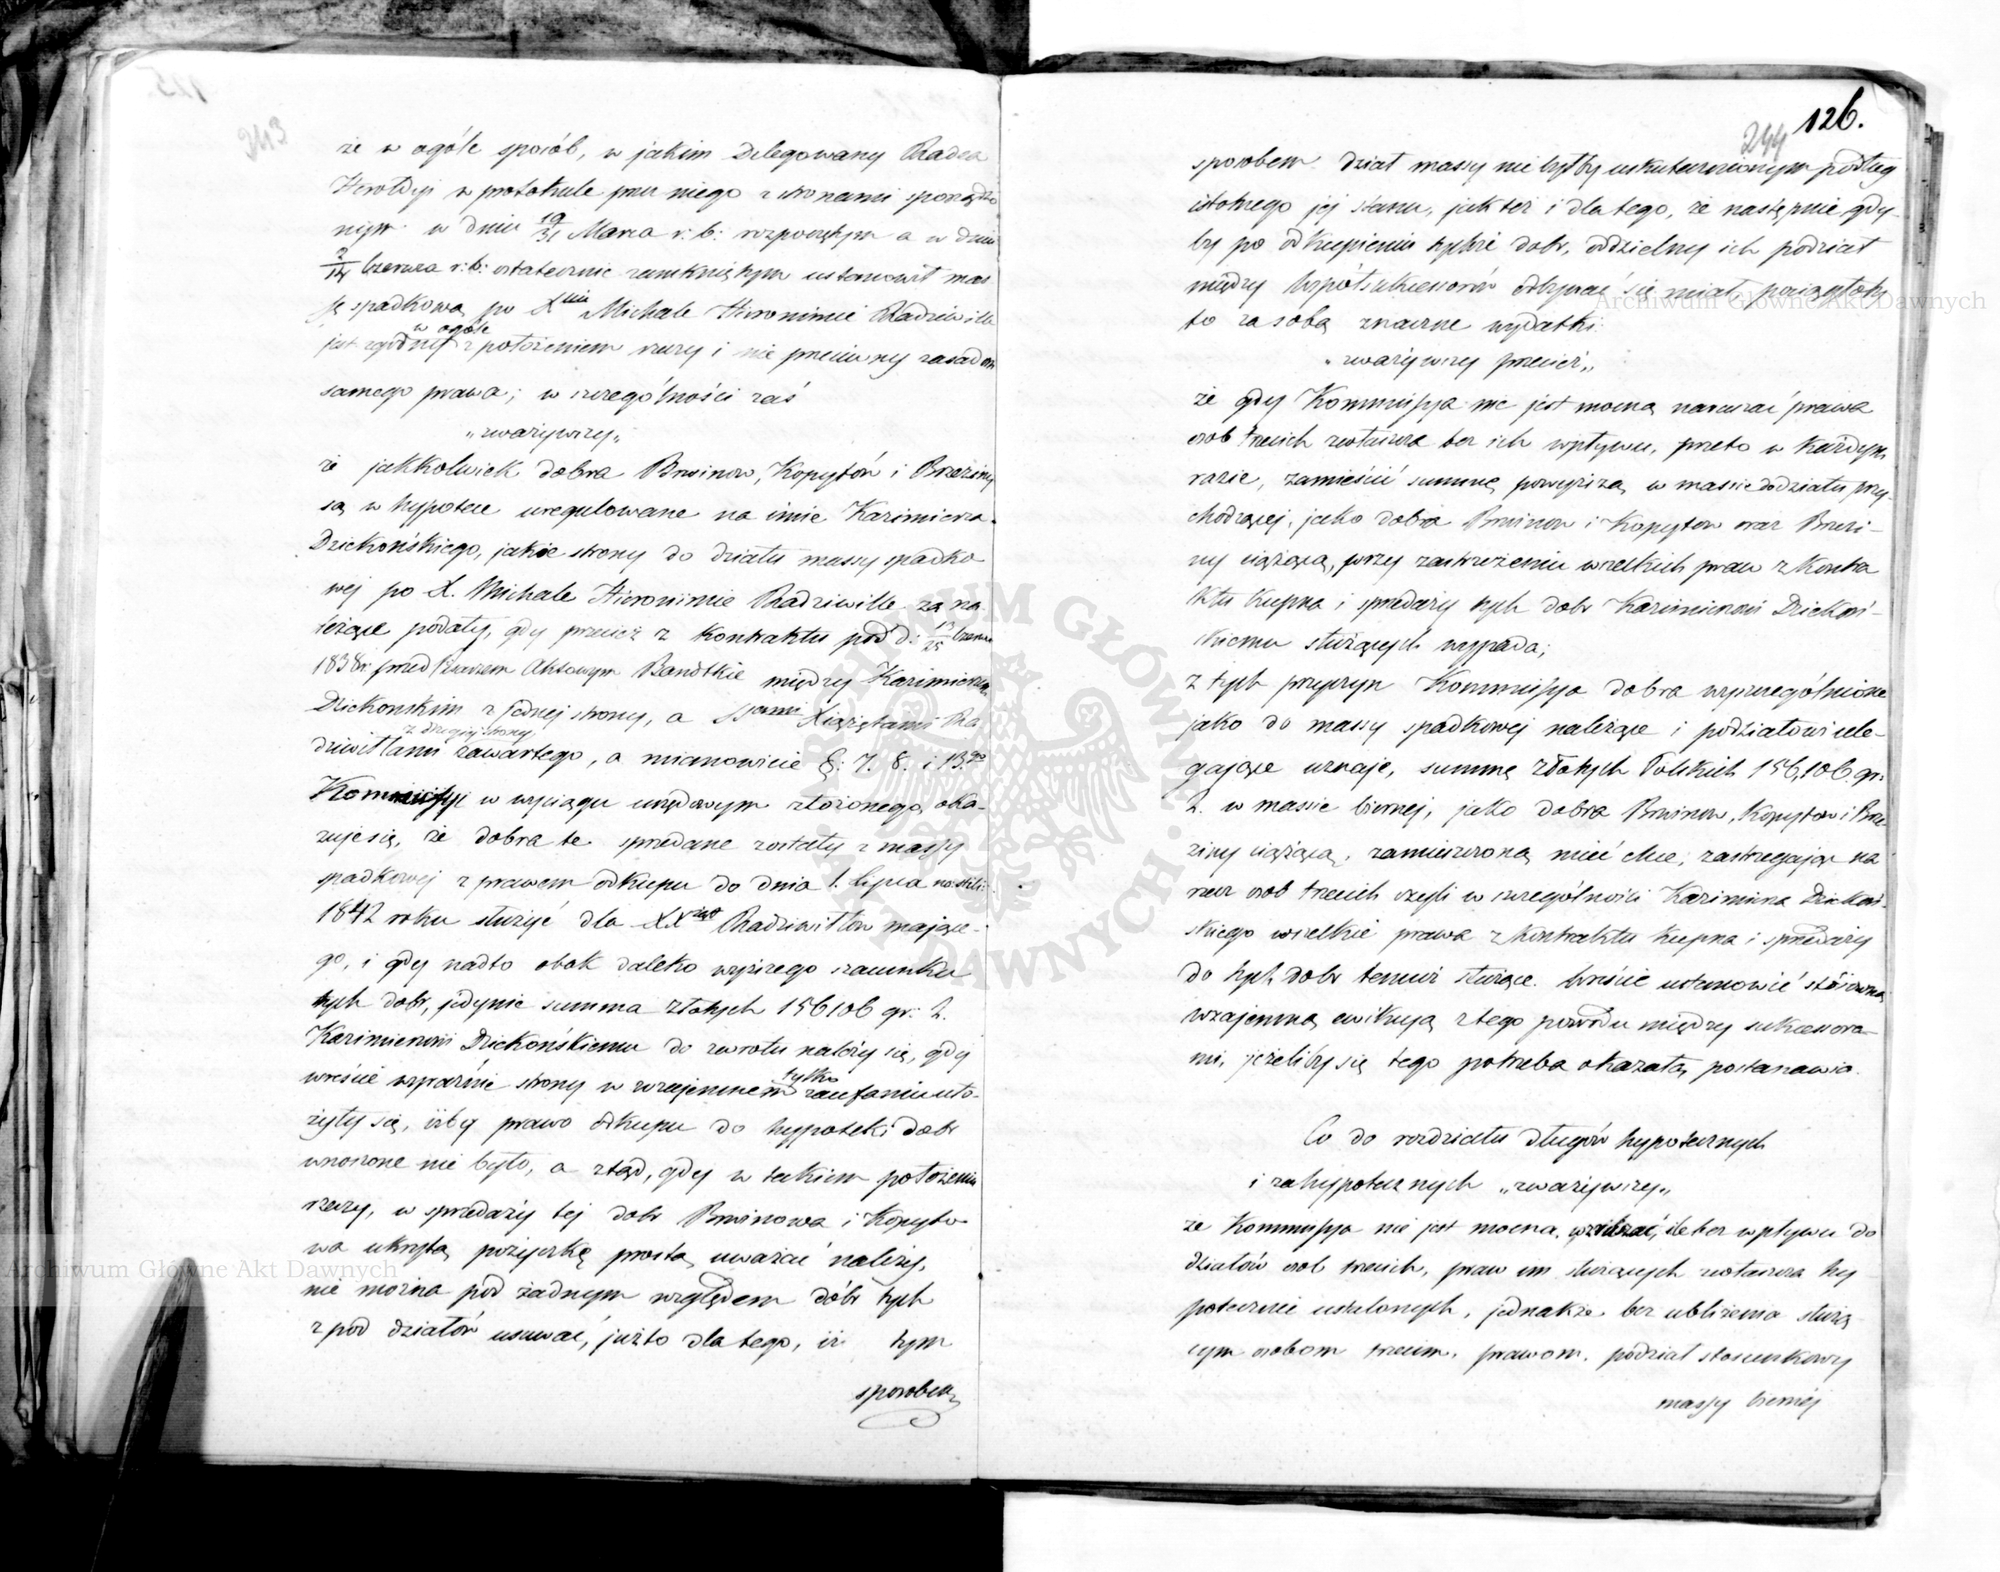 213
że w ogóle sposób, w jakim Delegowany Radca
Heroldyi w protokule przez niego z stronami sporządzo
nym w dniu 19/31 Marca r: b: rozpoczętym a w dniu
2/14 Czerwca r: b: ostatecznie zamkniętym ustanowił mas
sę spadkową po Xciu Michale Hieronimie Radziwille
w ogóle
jest zgodny z położeniem rzeczy i nie przeciwny zasadom
samego prawa; w szczególności zaś
„zważywszy„
że jakkolwiek dobra Brwinow, Kopytów i Brzeziny
są w hypotece uregulowane na imie Kazimierza
Dziekońskiego, jakie strony do działu massy spadko
wej po X. Michale Hieronimie Radziwille za na
leżące podały, gdy przecież z kontraktu pod d: 13/25 Czerwca
1838 r. przed Pisarzem Aktowym Bandtkie między Kazimierzem
Dziekonskim z jednej strony, a XXami Xiążętami Ra
z drugiej strony
dziwiłłami zawartego, a mianowicie §: 7. 8. i 13.go
Kommissyi w wyciągu urzędowym złożonego, oka-
zuje się, że dobra te sprzedane zostały z massy
spadkowej z prawem odkupu do dnia 1. Lipca no: stili:
1842 roku służyć dla XXiąt Radziwiłłow mające-
go, i gdy nadto obok daleko wyższego szacunku
tych dobr, jedynie summa złotych 156106 gr: 2.
Kazimierowi Dziekońskiemu do zwrotu należy się, gdy
tylko
wreście wyraźnie strony w wzajemnem zaufaniu uło-
żyły się, iżby prawo odkupu do hypoteki dobr
wnoszone nie było, a ztąd, gdy w takiem położeniu
rzeczy, w sprzedaży tej dobr Brwinowa i Kopyto
wa ukrytą pożyczkę prostą uważać należy,
nie można pod żadnym względem dóbr tych
z pod działów usuwać, już to dla tego, iż tym
sposobem
244 126.
sposobem dział massy nie byłby uskutecznionym podług
istotnego jej stanu, jak też i dla tego, że następnie gdy-
by po odkupieniu tychże dobr, oddzielny ich podział
między Współsukcessorów odbywać się miał, pociągłoby
to za sobą znaczne wydatki:
„zważywszy przecież„
że gdy Kommissya nie jest mocną naruszać prawa
osob trzecich zwłaszcza bez ich wpływu, przeto w każdym
razie, zamieścić summę powyższą w massie do działu przy-
chodzącej, jako dobra Brwinow i Kopytow oraz Brzezi-
ny ciążącą, przy zastrzeżeniu wszelkich praw z Kontra
ktu kupna i sprzedaży tych dobr Kazimierowi Dziekoń-
skiemu służących wypada;
z tych przyczyn Kommissya dobra wyszczególnione
jako do massy spadkowej należące i podziałowi ule-
gające uznaje, summę złotych Polskich 156,106. gr:
2. w massie biernej, jako dobra Brwinow, Kopytow i Brze-
ziny ciążącą, zamieszczoną mieć chce, zastrzegając na
rzecz osob trzecich czyli w szczególności Kazimierza Dziekoń-
skiego wszelkie prawa z Kontraktu kupna i sprzedaży
do tych dobr temuż służące. Wreście ustanowić stósowną
wzajemną ewikcyą z tego powodu między sukcessora-
mi, jeżeliby się tego potrzeba okazała, postanawia.
Co do rozdziału długów hypotecznych
i zahypotecznych „zważywszy„
że Kommissya nie jest mocna, wzruszać, ile bez wpływu do
działów osob trzecich, praw im służących zwłaszcza hy
potecznie ustalonych, jednakże bez ubliżenia służą
cym osobom trzecim, prawom, podział stosunkowy
massy biernej
Archiwum Główne Akt Dawnych
Archiwum Główne Akt Dawnych
ARCHIWUM GŁÓWNE AKT DAWNYCH